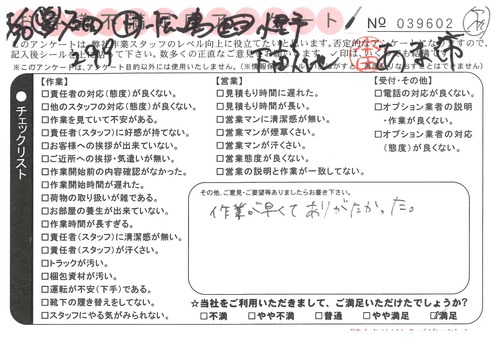 アンケート
No 039602
このアンケートは、弊社作業スタッフのレベル向上に役立てたいと思います。否定的なアンケートになりますので、
※このアンケートは、アンケート目的以外には使用いたしません。
チェックリスト
【作業】
□責任者の対応(態度)が良くない。
□他のスタッフの対応(態度)が良くない。
□作業を見ていて不安がある。
□責任者(スタッフ)に好感が持てない。
□お客様への挨拶が出来ていない。
□ご近所への挨拶・気遣いが無い。
□作業開始前の内容確認がなかった。
□作業開始時間が遅れた。
□荷物の取り扱いが雑である。
□お部屋の養生が出来ていない。
□作業時間が長すぎる。
□責任者(スタッフ)に清潔感が無い。
□責任者(スタッフ)が汗くさい。
□トラックが汚い。
□梱包資材が汚い。
□運転が不安(下手)である。
□靴下の履き替えをしてない。
□スタッフにやる気がみられない。
【営業】
□見積もり時間に遅れた。
□見積もり時間が長い。
□営業マンに清潔感が無い。
□営業マンが煙草くさい。
□営業マンが汗くさい。
□営業態度が良くない。
□営業の説明と作業が一致してない。
【受付・その他】
□電話の対応が良くない。
□オプション業者の説明
・作業が良くない。
□オプション業者の対応
(態度)が良くない。
その他、ご意見・ご要望等ありましたらお書き下さい。
作業が早くてありがたかった。
☆当社をご利用いただきまして、ご満足いただけたでしょうか?
□不満 □やや不満 □普通 □やや満足 ☑満足